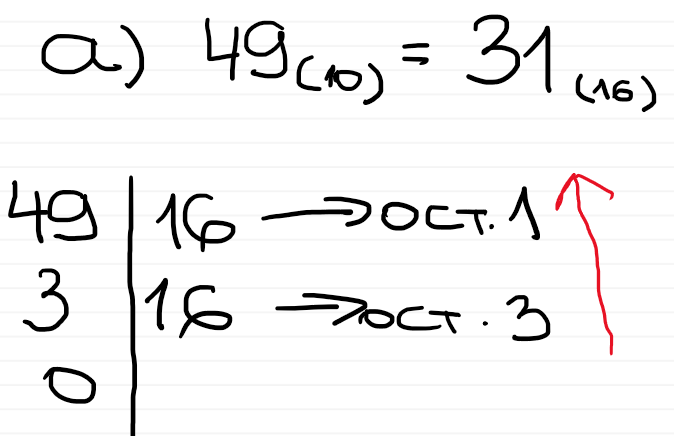 а) 49(10) = 31(16)
49 | 16 → ост. 1
3 | 16 → ост. 3
0 |